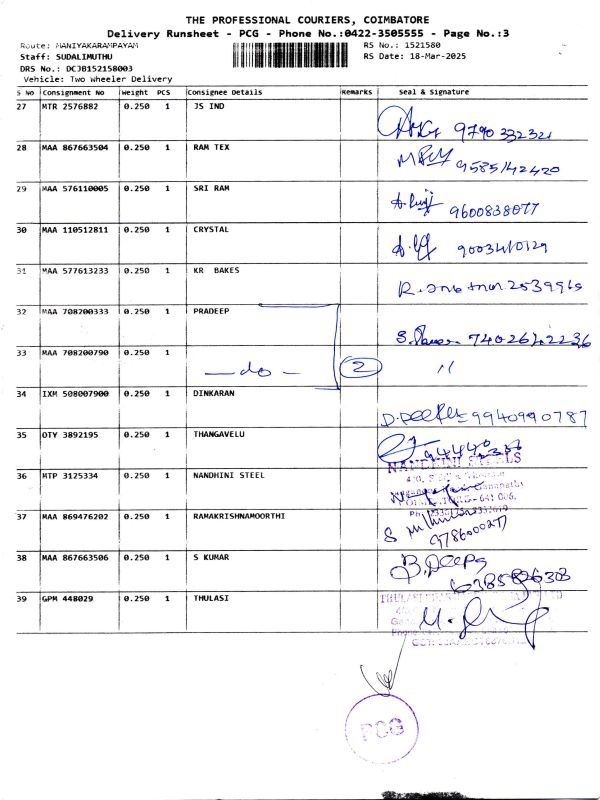 THE PROFESSIONAL COURIERS, COIMBATORE
Delivery Runsheet - PCG - Phone No.:0422-3505555 - Page No.:3
Route: MANIYAKARAMPAYAM RS No.: 1521580
Staff: SUDALIMUTHU RS Date: 18-Mar-2025
DRS No.: DCJB152158003
Vehicle: Two Wheeler Delivery
S No Consignment No Weight PCS Consignee Details Remarks Seal & Signature
27 MTR 2576882 0.250 1 JS IND
9790332321
28 MAA 867663504 0.250 1 RAM TEX
9585142420
29 MAA 576110005 0.250 1 SRI RAM
9600838077
30 MAA 110512811 0.250 1 CRYSTAL
31 MAA 577613233 0.250 1 KR BAKES
32 MAA 708200333 0.250 1 PRADEEP
33 MAA 708200790 0.250 1
— do — 2 "
34 IXM 508007900 0.250 1 DINKARAN
9940990787
35 OTY 3892195 0.250 1 THANGAVELU
36 MTP 3125334 0.250 1 NANDHINI STEEL
37 MAA 869476202 0.250 1 RAMAKRISHNAMOORTHI
38 MAA 867663506 0.250 1 S KUMAR
B. Deepa
39 GPM 448029 0.250 1 THULASI
PCG